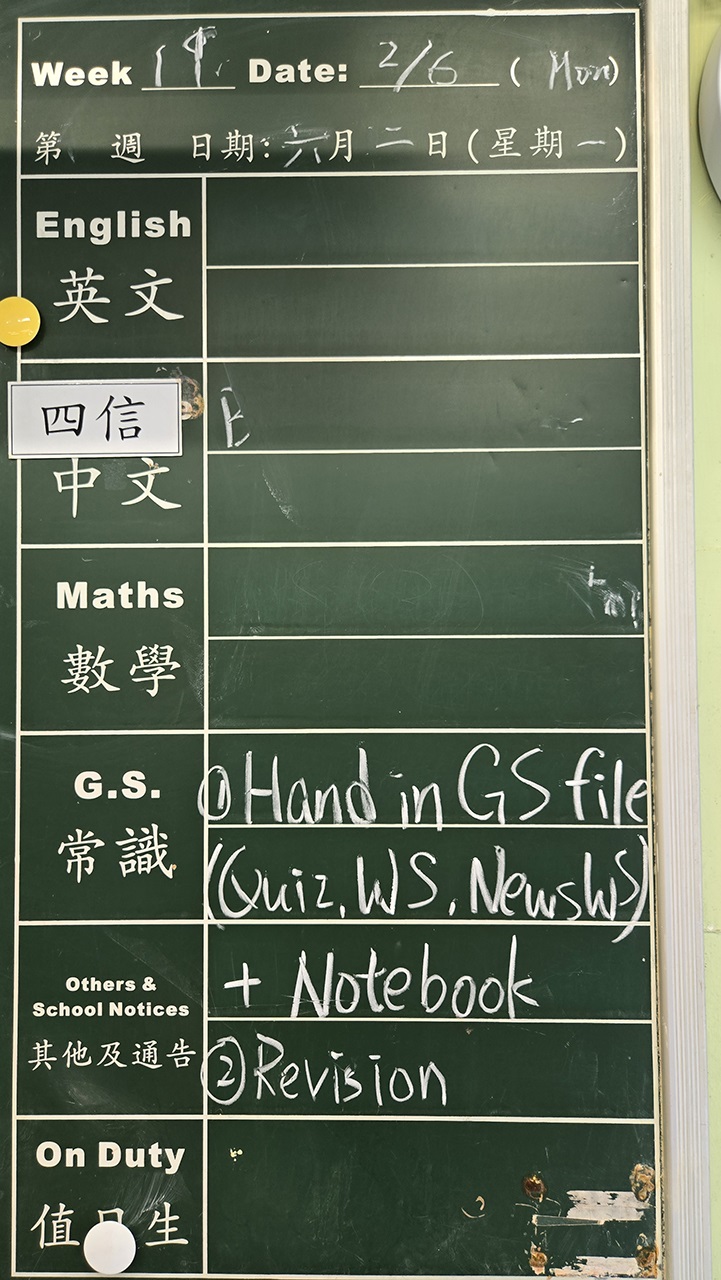 Week 19 Date: 2/6 (Mon)
第 週 日期:六月二日(星期一)
English
英文
四信
中文
Maths
數學
G.S.
常識
①Hand in GS file
(Quiz, WS, NewsWS)
+ Notebook
Others &
School Notices
其他及通告
②Revision
On Duty
值日生